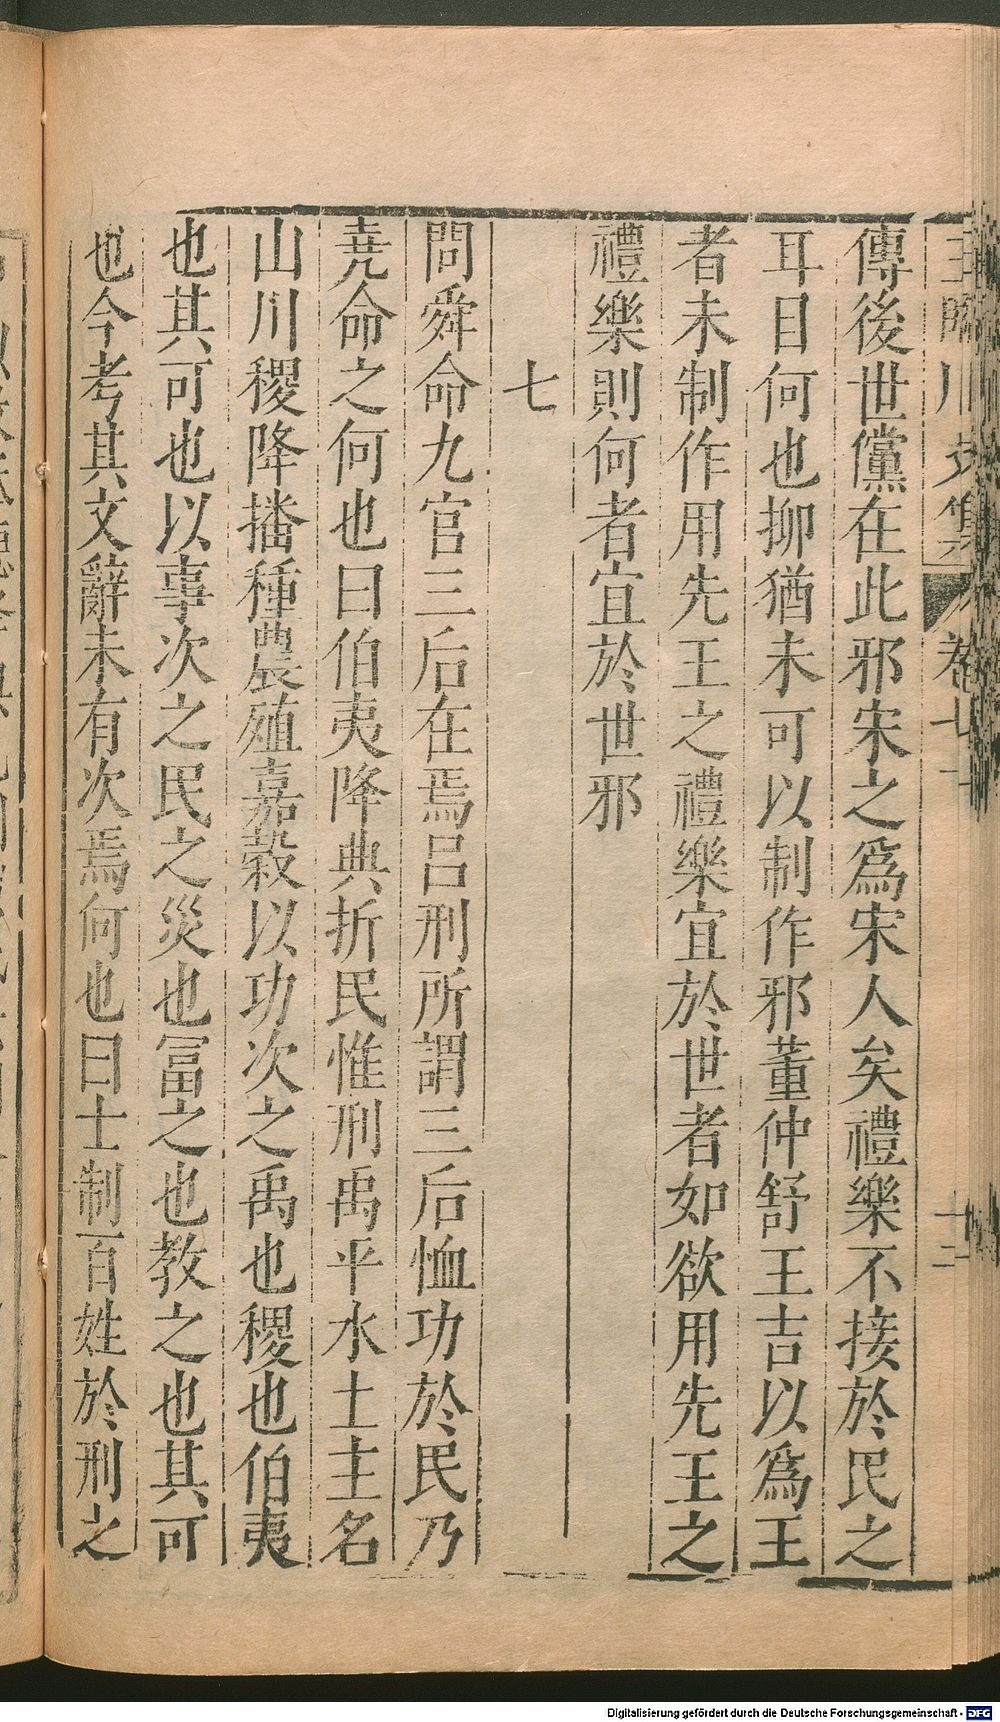 傳後世儻在此邪宋之爲宋人矣禮樂不接於民之
耳目何也抑猶未可以制作邪董仲舒王吉以爲王
者未制作用先王之禮樂宜於世者如欲用先王之
禮樂則何者宜於世邪
七
問舜命九官三后在焉呂刑所謂三后恤功於民乃
堯命之何也曰伯夷降典折民惟刑禹平水土主名
山川稷降播種農殖嘉穀以功次之禹也稷也伯夷
也其可也以事次之民之災也冨之也教之也其可
也今考其文辭未有次焉何也曰士制百姓於刑之
王臨川文集
卷七十
十二
Digitalisierung gefördert durch die Deutsche Forschungsgemeinschaft - DFG